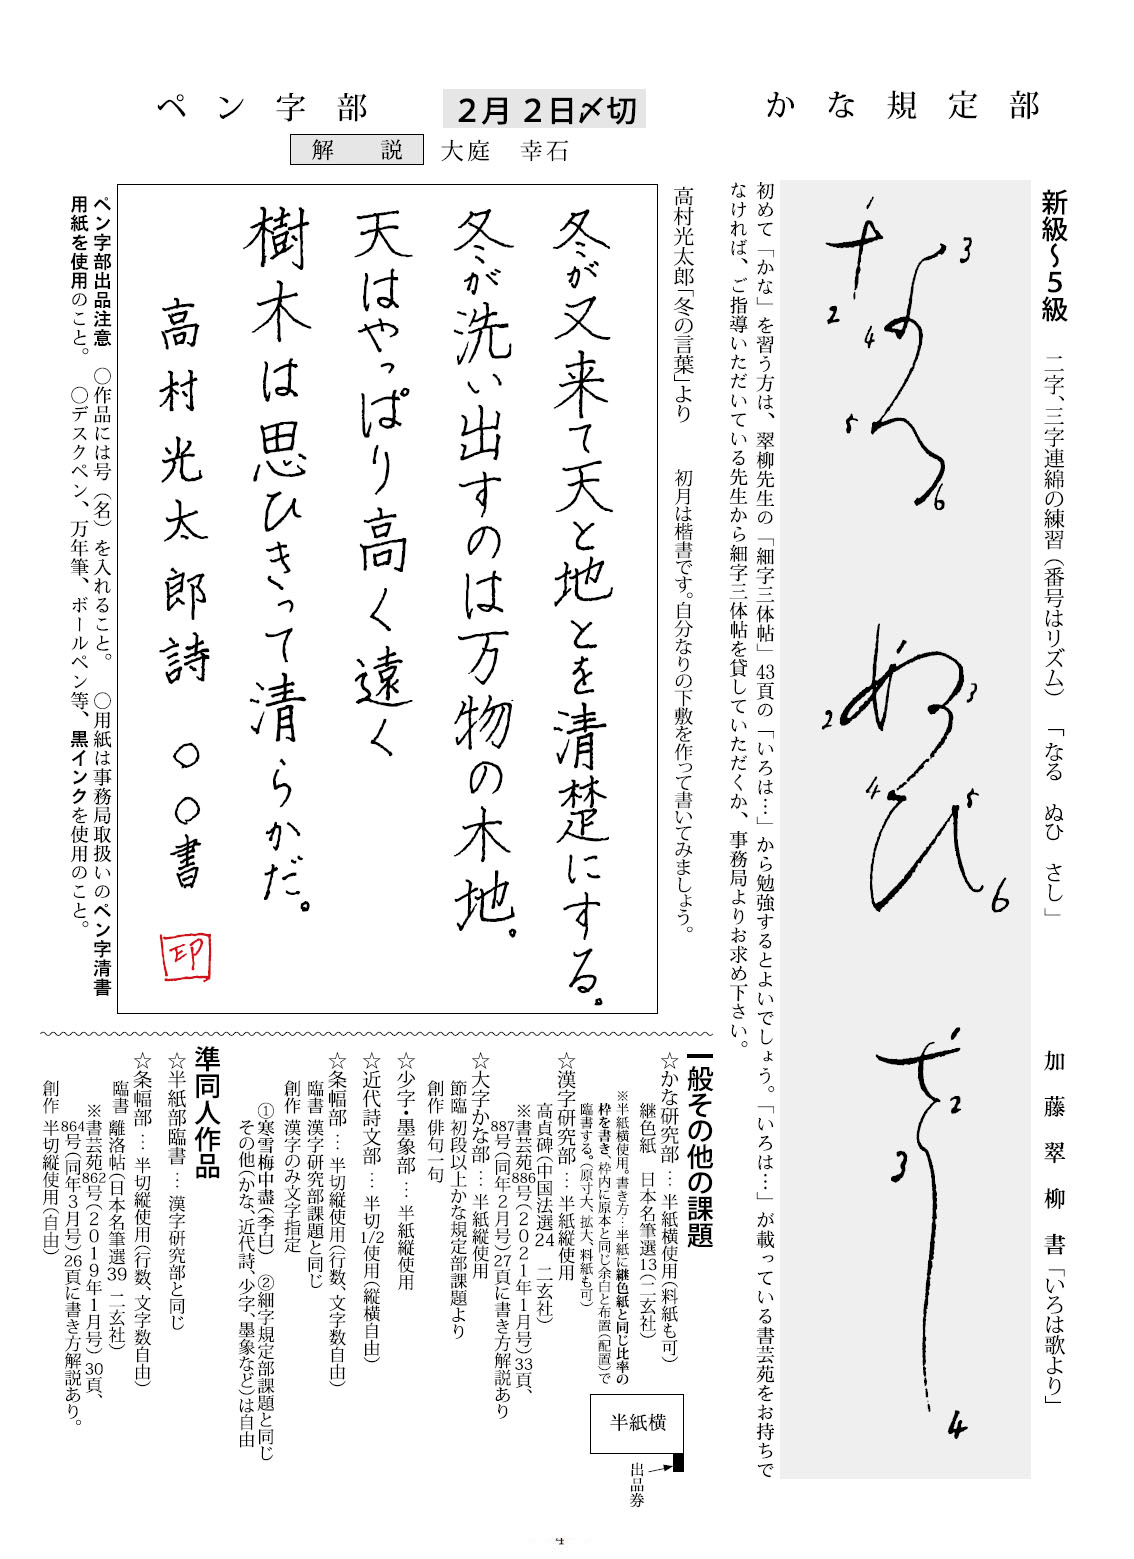 かな規定部
新級～５級
二字、三字連綿の練習（番号はリズム）　「なる　ぬひ　さし」
加藤翠柳書「いろは歌より」
なる
1
2
3
4
5
6
ぬひ
1
2
3
4
5
6
さし
1
2
3
4
初めて「かな」を習う方は、翠柳先生の「細字三体帖」43頁の「いろは…」から勉強するとよいでしょう。「いろは…」が載っている書芸苑をお持ちで
なければ、ご指導いただいている先生から細字三体帖を貸していただくか、事務局よりお求め下さい。
２月２日〆切
ペン字部
解説　大庭　幸石
高村光太郎「冬の言葉」より　　初月は楷書です。自分なりの下敷を作って書いてみましょう。
冬が又来て天と地とを清楚にする。
冬が洗い出すのは万物の木地。
天はやっぱり高く遠く
樹木は思ひきって清らかだ。
高村光太郎詩　○○書
印
ペン字部出品注意　○作品には号（名）を入れること。　○用紙は事務局取扱いのペン字清書
用紙を使用のこと。　○デスクペン、万年筆、ボールペン等、黒インクを使用のこと。
一般その他の課題
☆かな研究部…半紙横使用（料紙も可）
継色紙　日本名筆選13（二玄社）
※半紙横使用。書き方…半紙に継色紙と同じ比率の
枠を書き、枠内に原本と同じ余白と布置（配置）で
臨書する。（原寸大、拡大、料紙も可）
半紙横
出品券
☆漢字研究部…半紙縦使用
高貞碑（中国法選24　二玄社）
※書芸苑886号（２０２１年１月号）33頁、
887号（同年２月号）27頁に書き方解説あり
☆大字かな部…半紙縦使用
節臨　初段以上かな規定部課題より
創作　俳句一句
☆少字・墨象部…半紙縦使用
☆近代詩文部…半切1/2使用（縦横自由）
☆条幅部…半切縦使用（行数、文字数自由）
臨書　漢字研究部課題と同じ
創作　漢字のみ文字指定
①寒雪梅中盡（李白）　②細字規定部課題と同じ
その他（かな、近代詩、少字、墨象など）は自由
準同人作品
☆半紙部臨書…漢字研究部と同じ
☆条幅部…半切縦使用（行数、文字数自由）
臨書　離洛帖（日本名筆選39　二玄社）
※書芸苑862号（２０１９年１月号）30頁、
864号（同年３月号）26頁に書き方解説あり。
創作　半切縦使用（自由）